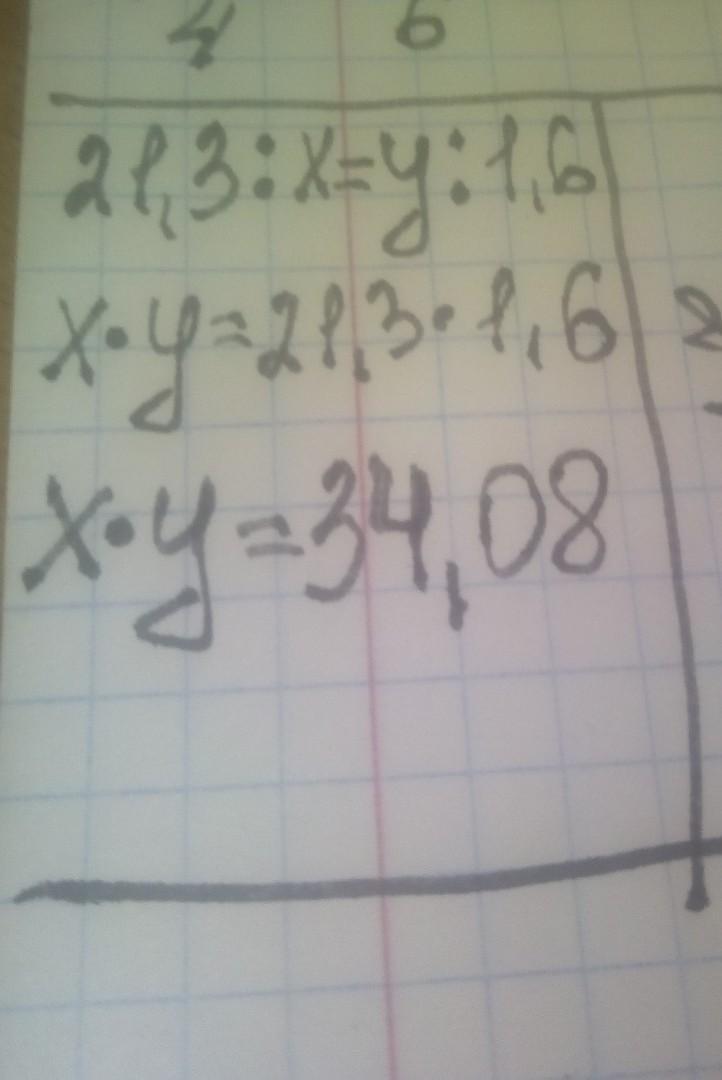 4 6
21,3:x=y:1,6
x·y=21,3·1,6
x·y=34,08